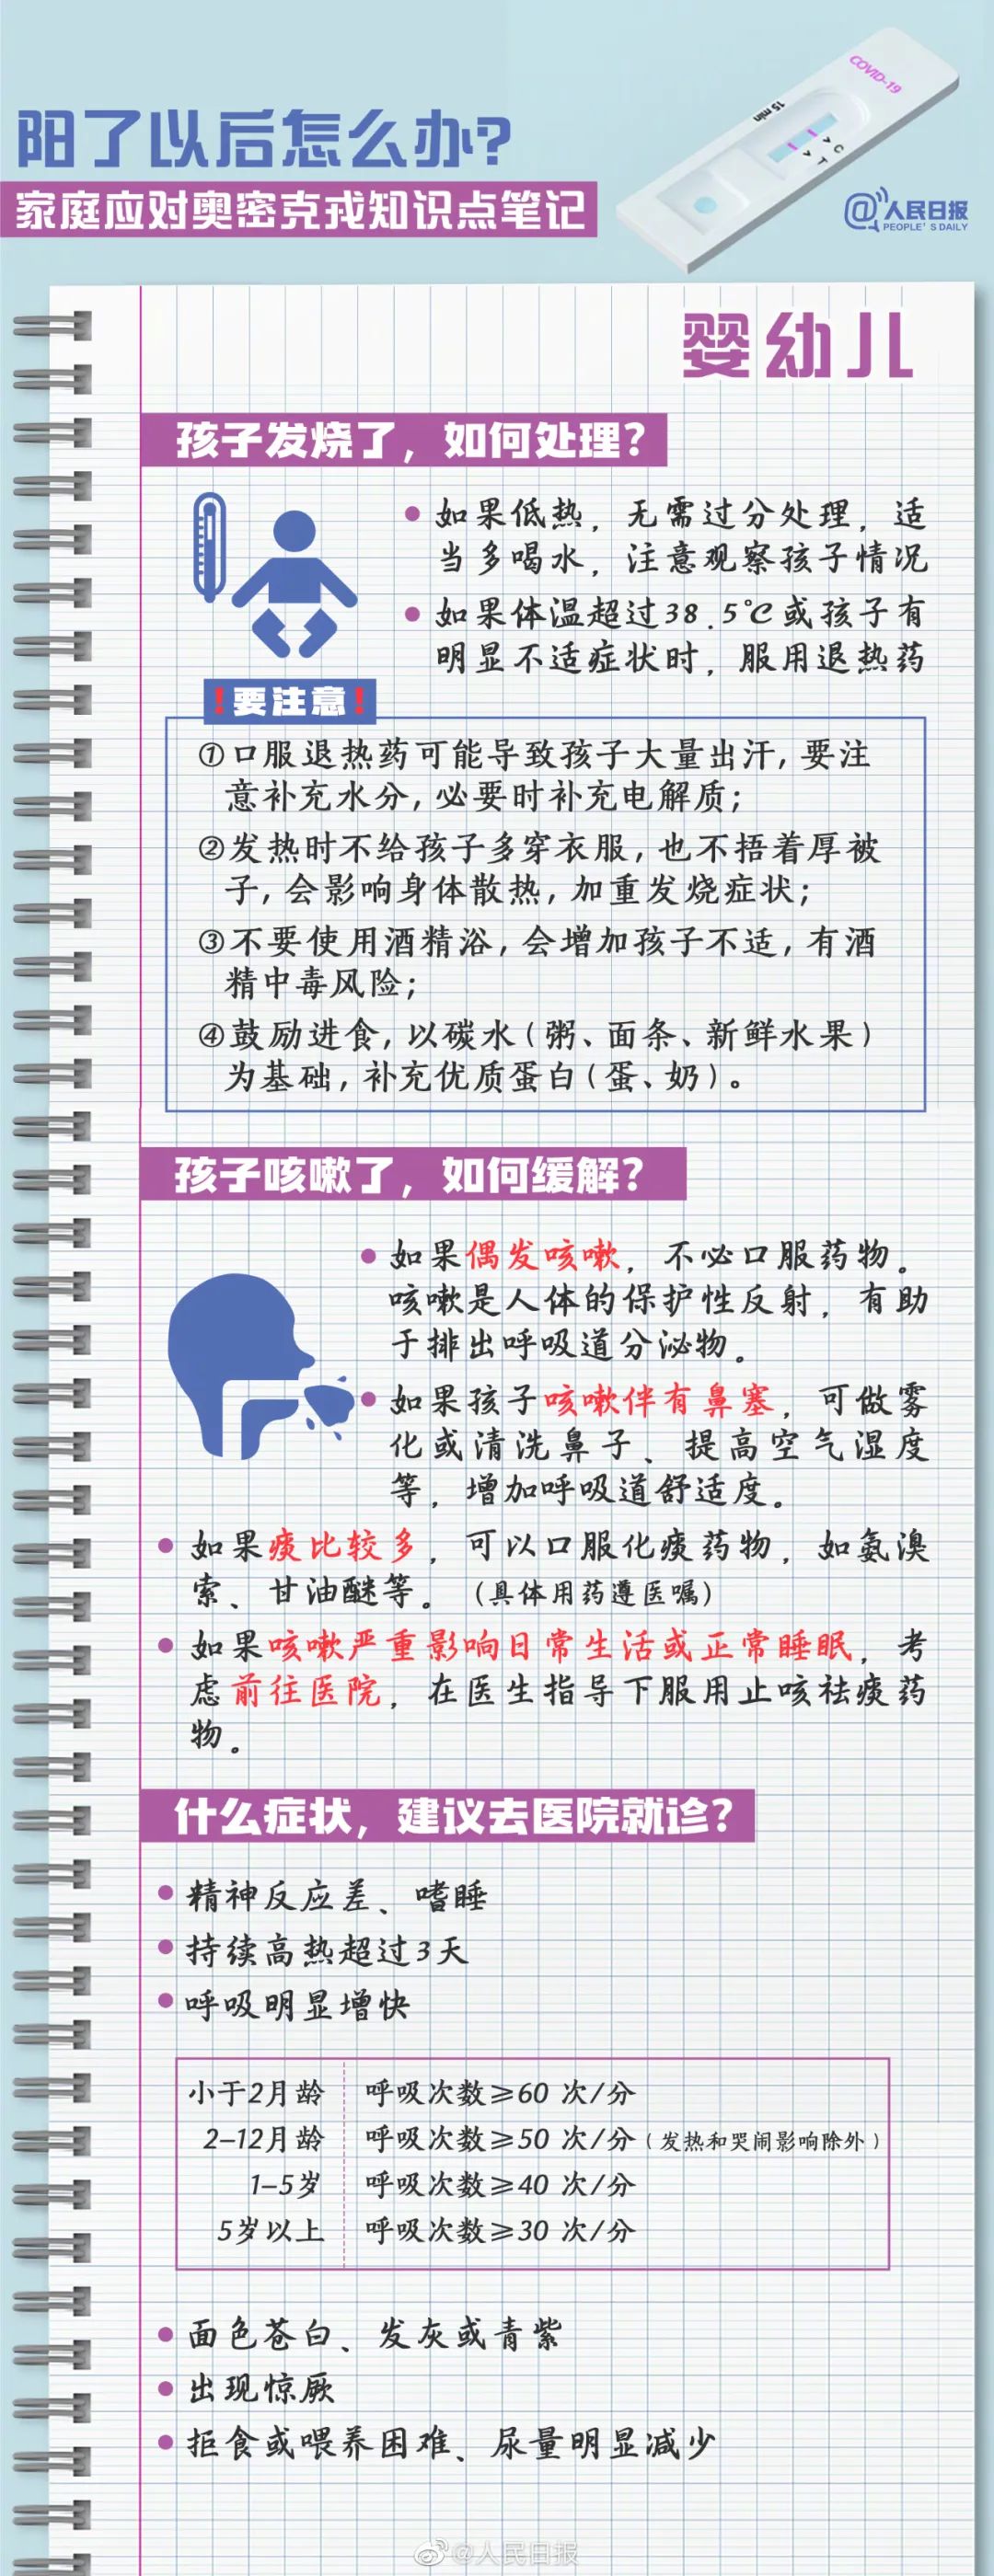 阳了以后怎么办?
家庭应对奥密克戎知识点笔记
COVID-19
15 min
C
T
@人民日报
PEOPLE'S DAILY
婴幼儿
孩子发烧了，如何处理？
如果低热，无需过分处理，适
当多喝水，注意观察孩子情况
如果体温超过38.5℃或孩子有
明显不适症状时，服用退热药
!要注意!
①口服退热药可能导致孩子大量出汗，要注
意补充水分，必要时补充电解质；
②发热时不给孩子多穿衣服，也不捂着厚被
子，会影响身体散热，加重发烧症状；
③不要使用酒精浴，会增加孩子不适，有酒
精中毒风险；
④鼓励进食，以碳水（粥、面条、新鲜水果）
为基础，补充优质蛋白（蛋、奶）。
孩子咳嗽了，如何缓解？
如果偶发咳嗽，不必口服药物。
咳嗽是人体的保护性反射，有助
于排出呼吸道分泌物。
如果孩子咳嗽伴有鼻塞，可做雾
化或清洗鼻子、提高空气湿度
等，增加呼吸道舒适度。
如果痰比较多，可以口服化痰药物，如氨溴
索、甘油醚等。（具体用药遵医嘱）
如果咳嗽严重影响日常生活或正常睡眠，考
虑前往医院，在医生指导下服用止咳祛痰药
物。
什么症状，建议去医院就诊？
精神反应差、嗜睡
持续高热超过3天
呼吸明显增快
小于2月龄 呼吸次数≥60 次/分
2–12月龄 呼吸次数≥50 次/分（发热和哭闹影响除外）
1–5岁 呼吸次数≥40 次/分
5岁以上 呼吸次数≥30 次/分
面色苍白、发灰或青紫
出现惊厥
拒食或喂养困难、尿量明显减少
@人民日报